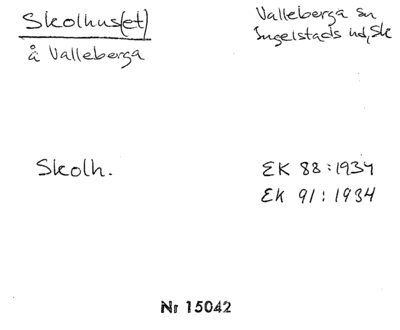 Skolhus(et)
å Valleberga
Valleberga sn
Ingelstads hd, Sk
Skolh.
EK 88:1934
EK 91:1934
Nr 15042